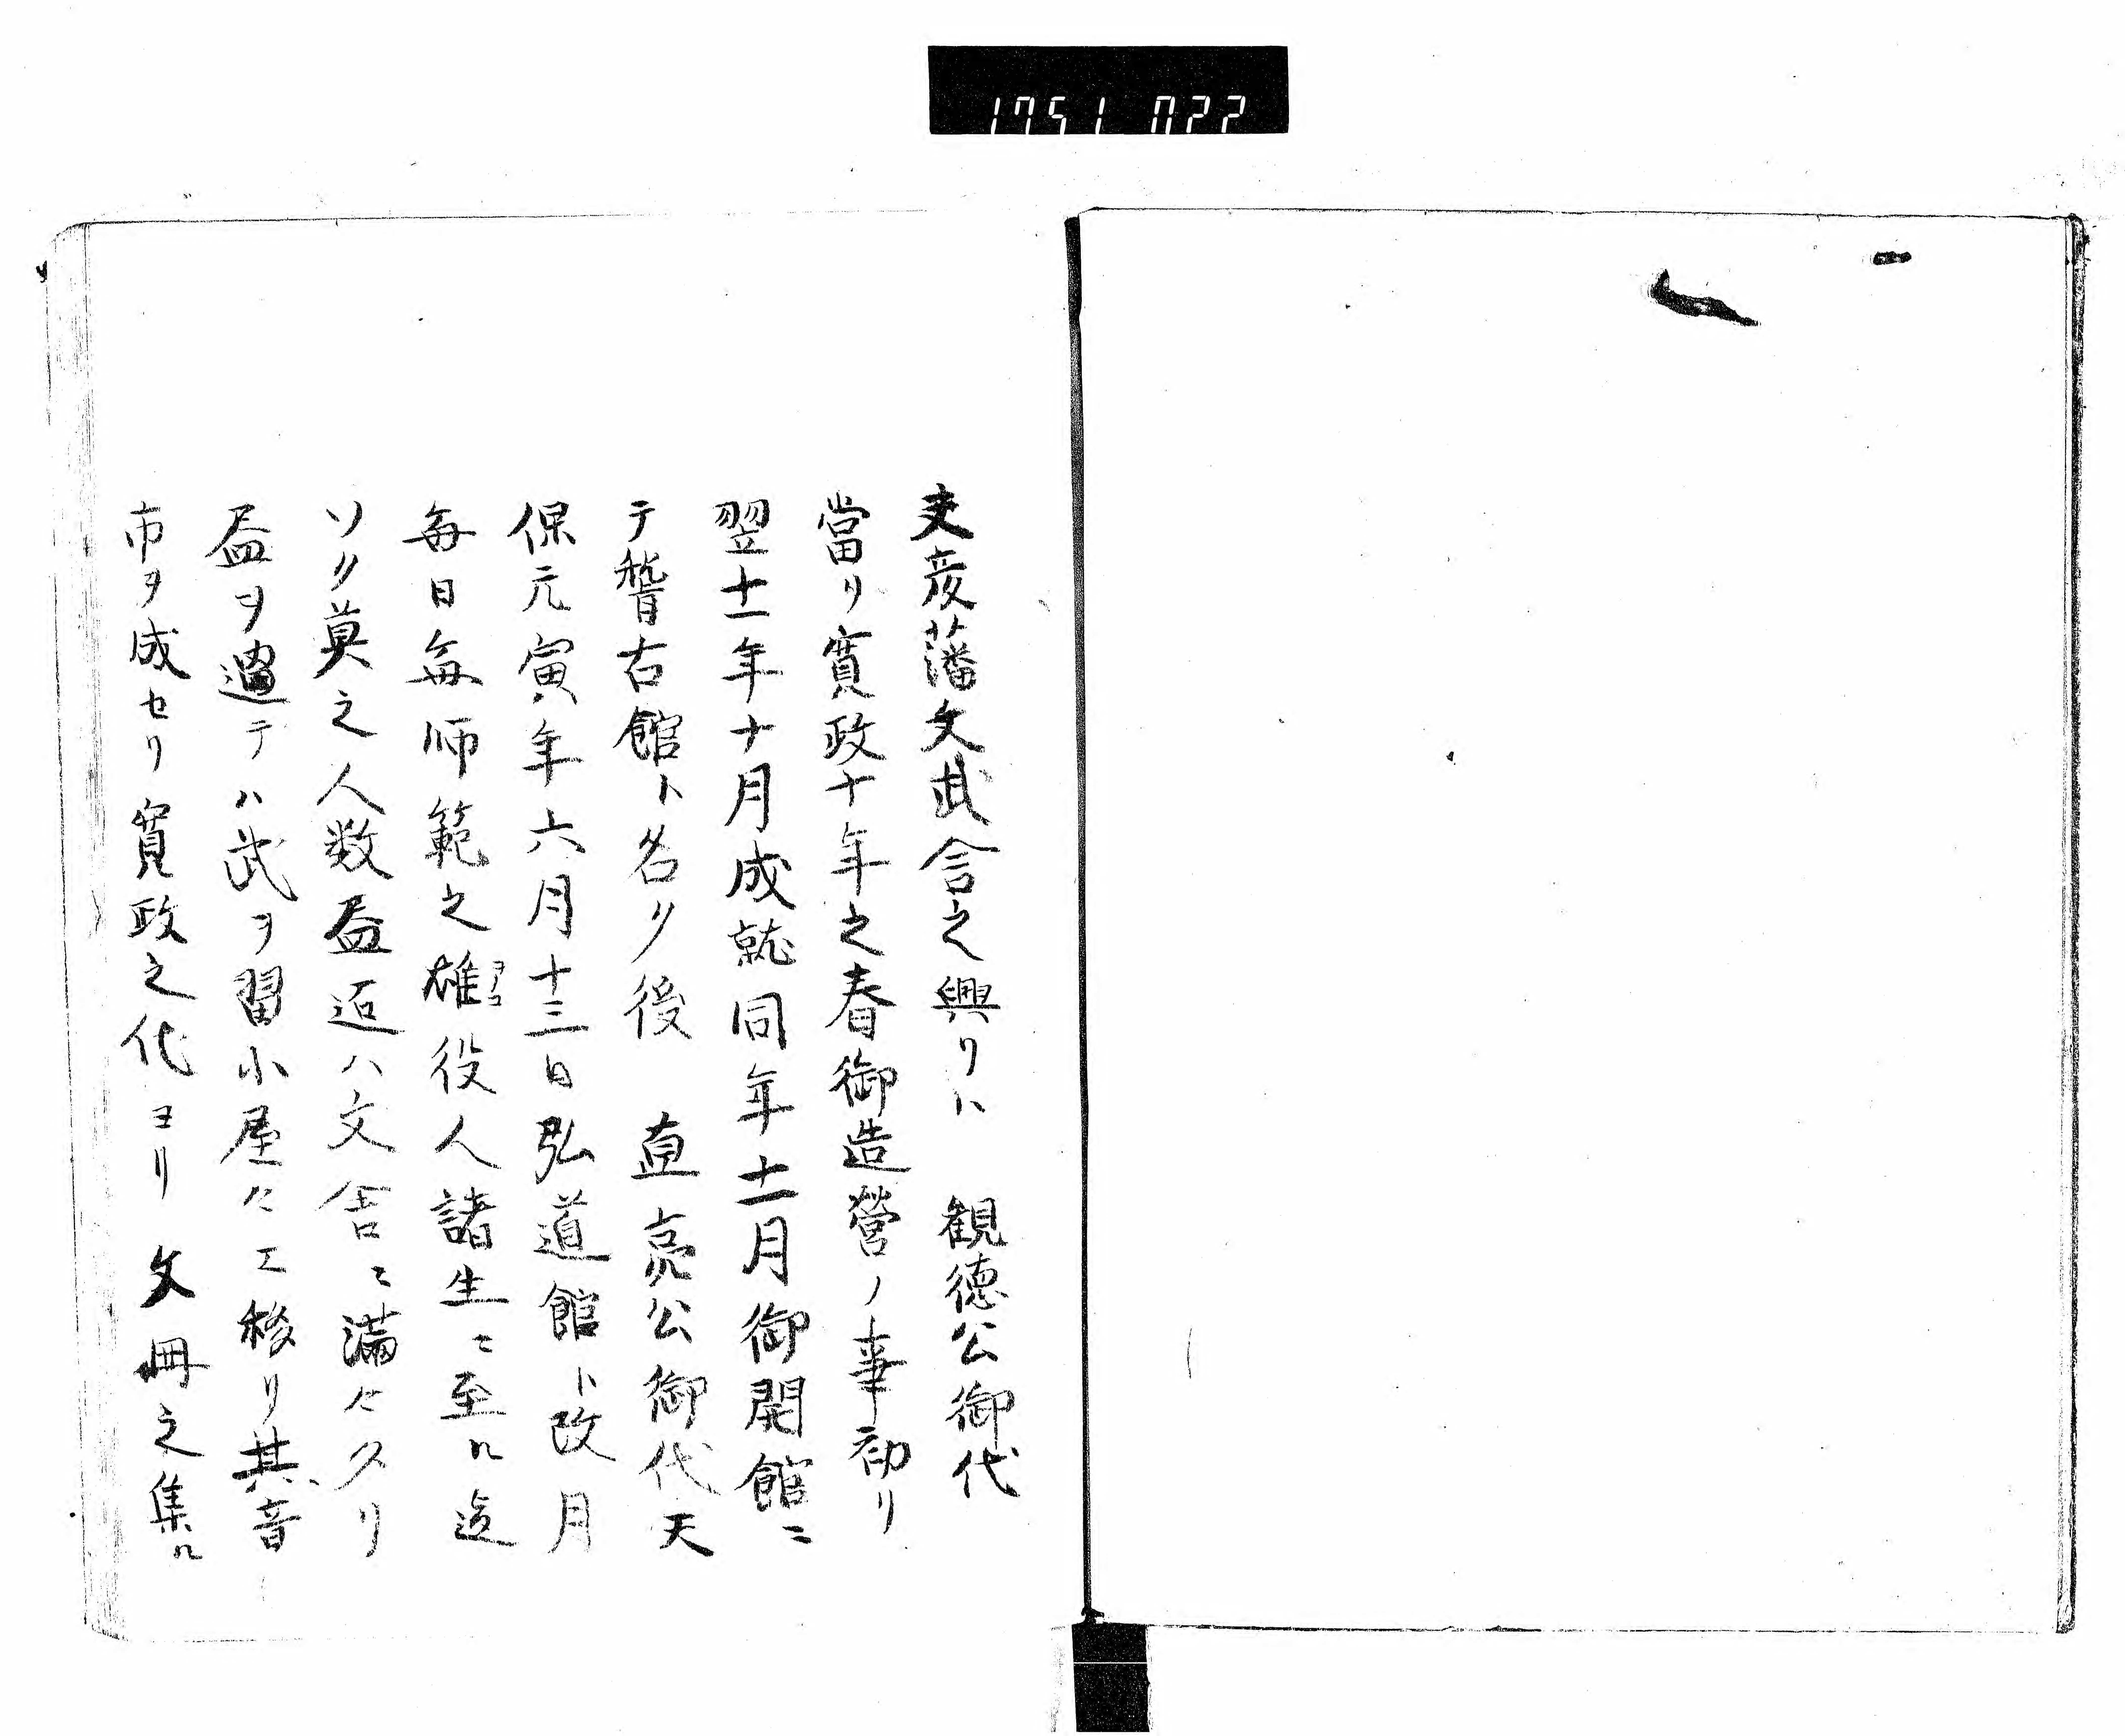 1751 022
夫彦藩文武舎之興リハ　観徳公御代
當リ寛政十年之春御造營ノ事初リ
翌十一年十月成就同年十一月御開館ニ
テ稽古館ト名ク後　直亮公御代天
保元寅年六月十三日弘道館ト改月
毎日毎師範之雄役人諸生ニ至ル迄
ヲノコ
ソノ莫之人数益 ハ文舎ニ満々タリ
益ヲ過テハ武ヲ習小屋々エ移リ其音
市ヲ成セリ寛政之代ヨリ文冊之集ル